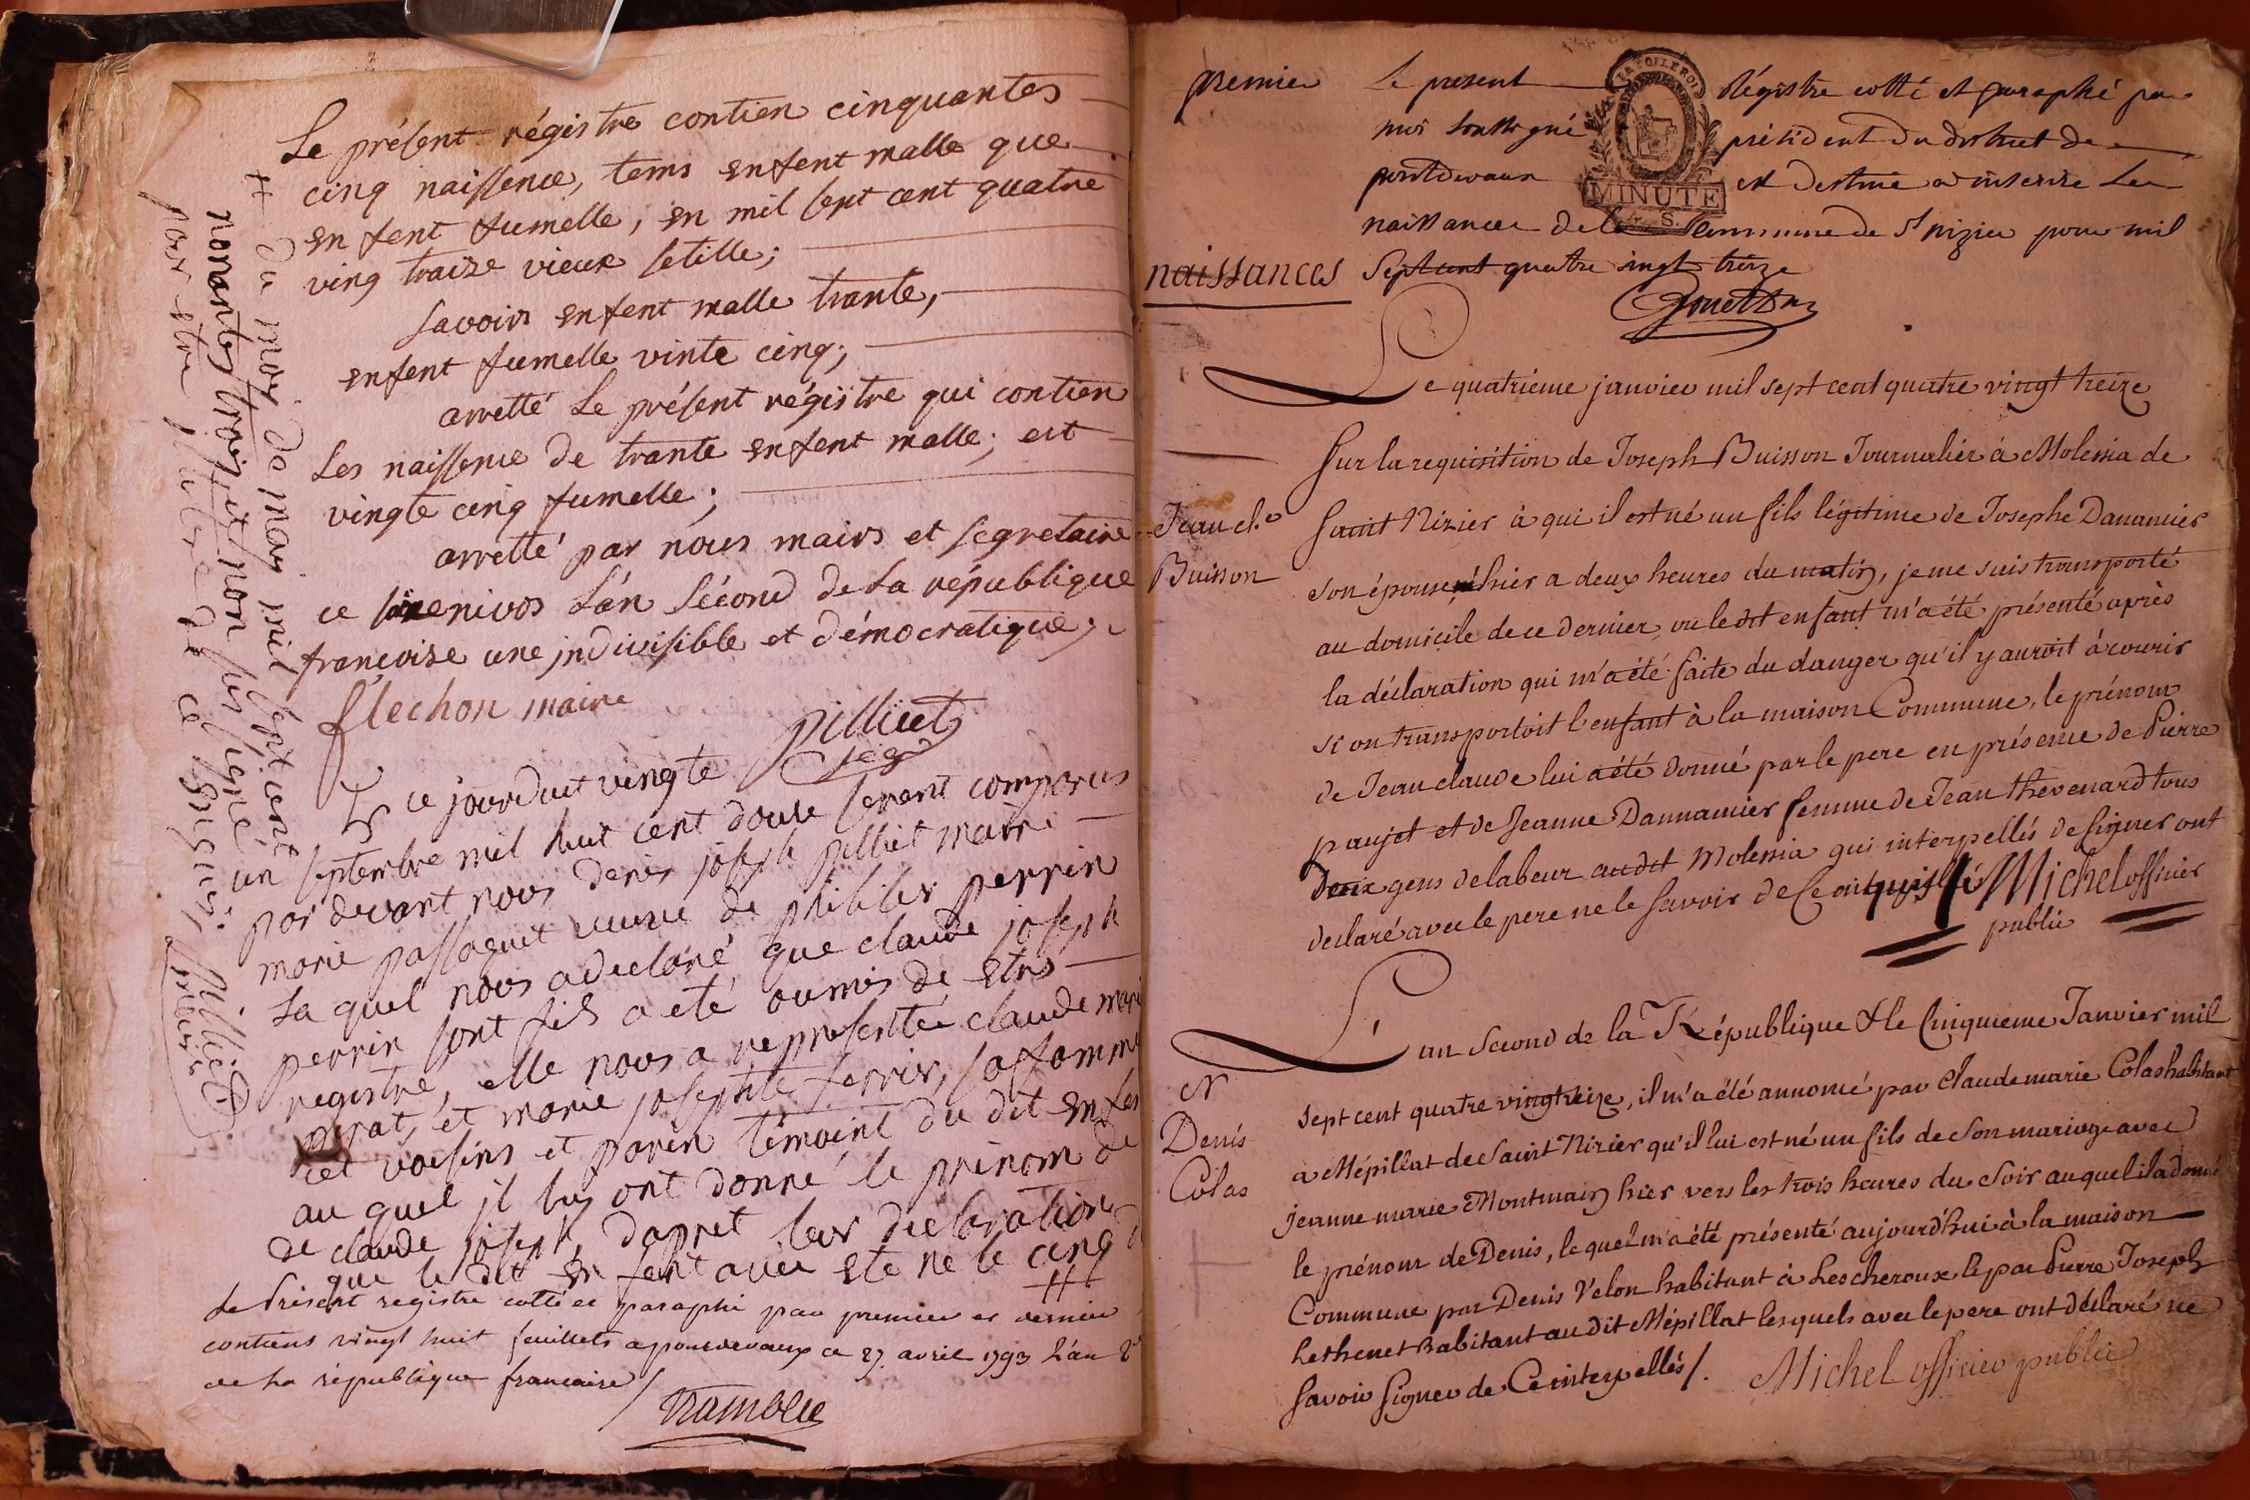 Le présent régistre contien cinquantes
cinq naissence, tems enfent malle que
enfent fumelle, en mil sept cent quatre
ving traize vieux setille;
savoirs enfent malle trante,
enfent fumelle vinte cinq;
arretté Le présent régistre qui contien
Les naissence de trante enfent malle; est
vingte cinq fumelle;
arretté par nous mairs et segretaire
ce nivos L'an sécond de La république
françoise une jndivisible et démocratique;
flechon maire
pilliet
seg
Et ce jourduit vingte
un septembre mil huit cent douse sement comparus
par devant nous denis joseph pilliet maire
marie passaquet veuve de philiber perrin
La quel nous a declaré que claude joseph
perrin sont fils a eté oumis de etre
registré, elle nous a representée claude mari
perat, et marie josephte ferrir, sa famme
cet voisins et paren témoint du dit enfen
au quel jl luy ont donné le prénom de
de claude joseph, dapret leur declaration
que le dit enfent avei eté né le cinq #
# du moy de may mil sept cent
nonantes trois et non ses signé
pour etre illitere de ce enquis. pilliet
maire
Le Présent registre cotté et paraphé par premier et dernier
contiens vingt huit feuillets a pontdevaux ce 27 avril 1793 L'an 2e
de la république francaise /
Tramblee
premier
Le present Régistre cotté et paraphé par
moi soussigné président du district de
pontdevaux est destiné a inserire Les
naissances de la Commune de St nizier pour mil
Sept cent quatre vingt treize
MINUTE
S.
naissances
Le quatrieme janvier mil sept cent quatre vingt treize
Jean cl.e
Buisson
Sur la requisition de Joseph Buisson Journalier à Molessia de
Saint Nizier à qui il est né un fils légitime de Josephe Danamier
son épouse né hier a deux heures du matin, je me suis transporté
au domicile de ce dernier, ou ledit enfant m'a été présenté après
la déclaration qui m'a été faite du danger qu'il y auroit à courir
si on transportoit l'enfant à la maison Commune, le prénom
de Jean claude lui a été donné par le pere en présence de Pierre
paujet et de Jeanne Dannamier femme de Jean thevenard tous
deux gens de labeur audit Molessia qui interpellés de signer ont
declaré avec le pere ne le savoir de Ce Michel officier
public
L'an second de la République & le Cinquieme Janvier mil
N
Denis
Colas
sept cent quatre vingt treize, il m'a été annoncé par Claude marie Colas habitant
a Mépillat de Saint Nizier qu'il lui est né un fils de son mariage avec
jeanne marie Montmain hier vers les trois heures du soir auquel il a donné
le prénom de Denis, lequel m'a été présenté aujourd'hui à la maison
Commune par Denis Velon habitant à Lescheroux le par Pierre Joseph
Lethenet habitant audit Mépillat lesquels avec le pere ont déclaré ne
savoir signer de Ce interpellés /. Michel officier public